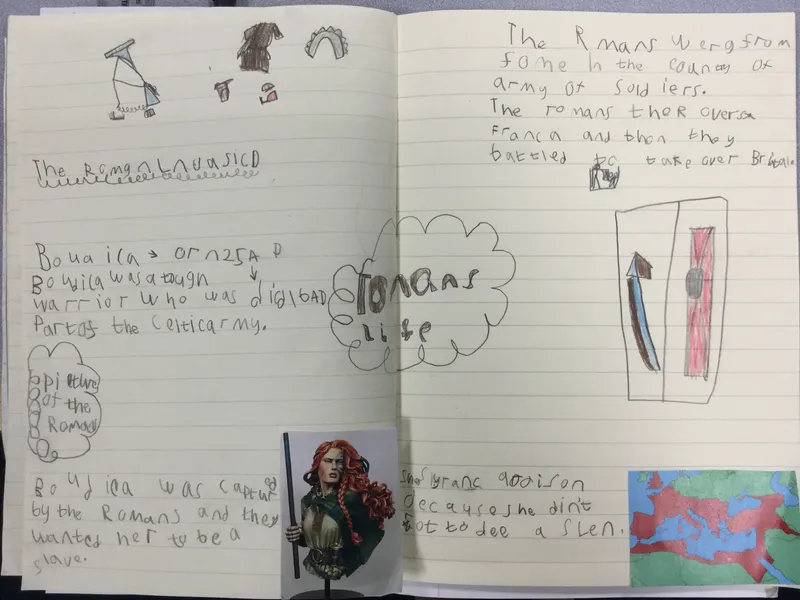 The RomanInvasicD
Boudica → orn25A D
Boudica was a tough
warrior who was did60AD
Part of the Celtic army.
pictures
of the
Romans
Boudica was captured
by the Romans and they
wanted her to be a
slave.
romans
Life
The Rmans werg from
rome in the county of
army of Soldiers.
The romans thoR over a
Franca and then they
battled to take over
because she din't
to